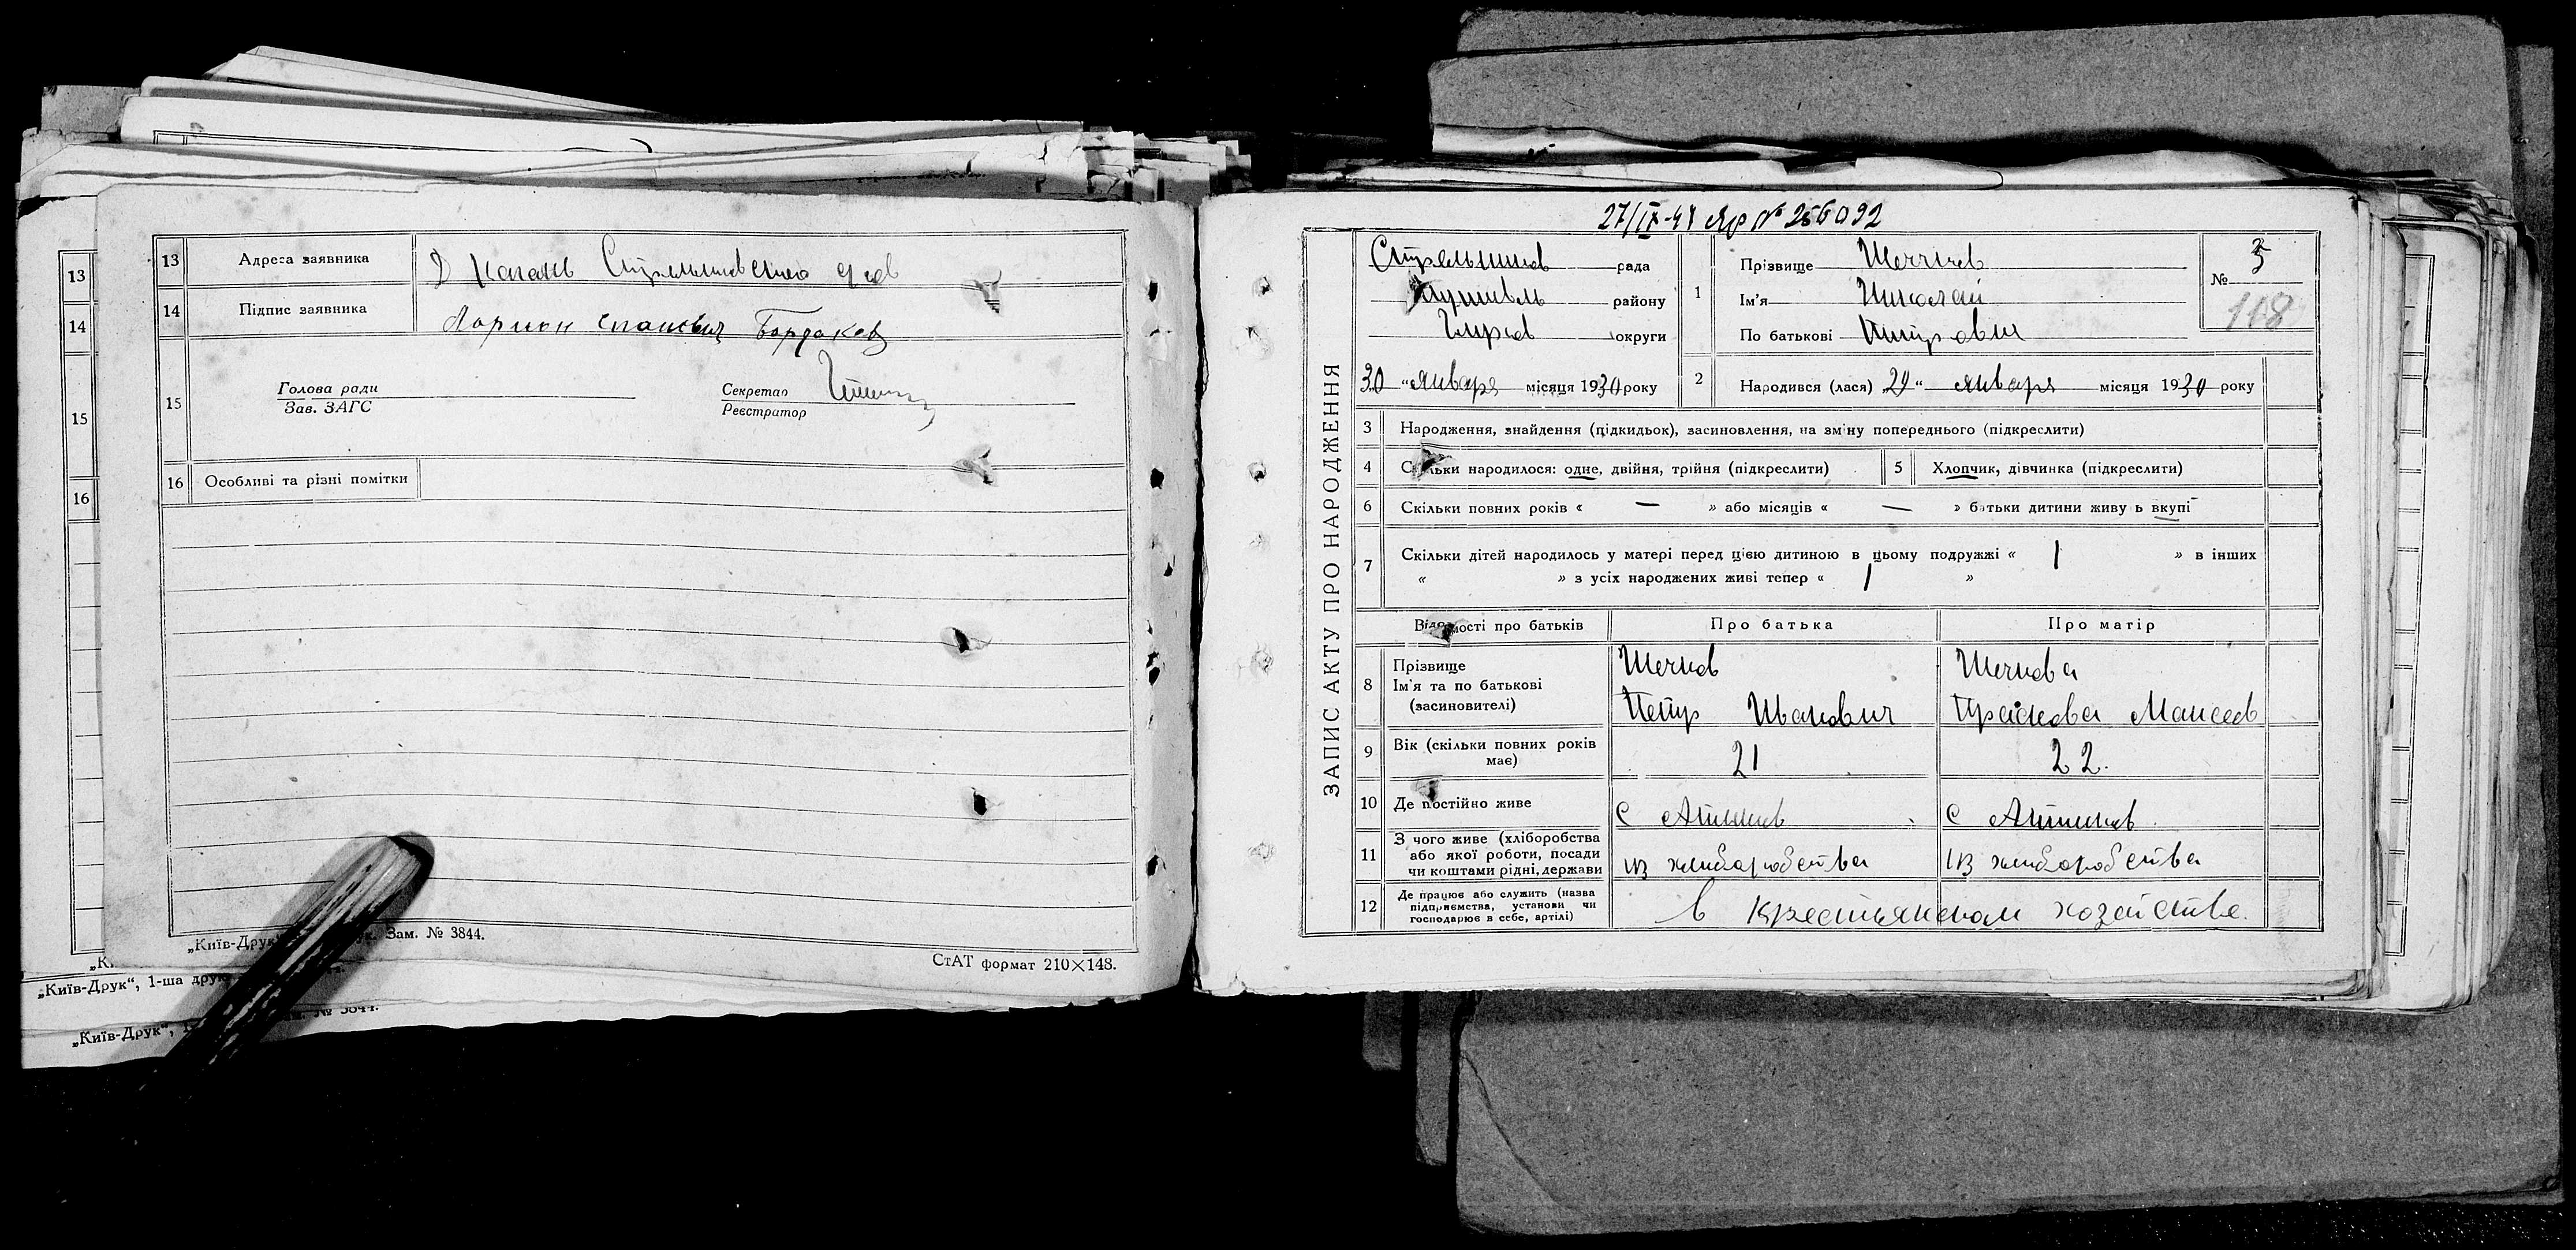 13 Адреса заявника
14 Підпис заявника Ларион Бордаков
15 Голова ради
Зав. ЗАГС
Секретар
Реєстратор
16 Особливі та різні помітки
„Київ-Друк“ Зам. № 3844.
СтАТ формат 210×148.
„Київ-Друк“, 1-ша друк.
„Київ-Друк“,
13
14
15
16
27/IX-47 № 256092
ЗАПИС АКТУ ПРО НАРОДЖЕННЯ
рада
Путивль району
округи
30 „ Января місяця 1930 року
1 Прізвище
Ім'я Николай
По батькові Петрович
№ 5
118
2 Народився (лася) „29“ января місяця 1930 року
3 Народження, знайдення (підкидьок), засиновлення, на зміну попереднього (підкреслити)
4 Скільки народилося: одне, двійня, трійня (підкреслити)
5 Хлопчик, дівчинка (підкреслити)
6 Скільки повних років « — » або місяців « — » батьки дитини живуть вкупі
7 Скільки дітей народилось у матері перед цією дитиною в цьому подружжі « 1 » в інших
« » з усіх народжених живі тепер « 1 »
Відомості про батьків Про батька Про матір
8 Прізвище
Ім'я та по батькові
(засиновителі)
Петр Иванович
9 Вік (скільки повних років має) 21 22.
10 Де постійно живе
11 З чого живе (хліборобства
або якої роботи, посади
чи коштами рідні, держави
из хлиборобства из хлиборобства
12 Де працює або служить (назва
підприємства, установи чи
господарює в себе, артілі)
в крестьянском хозяйстве.